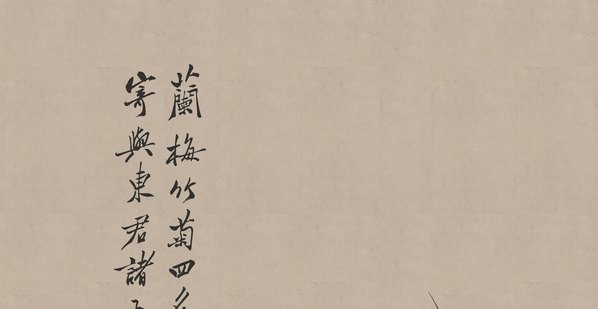 蘭梅竹菊四名
寄與東君諸子